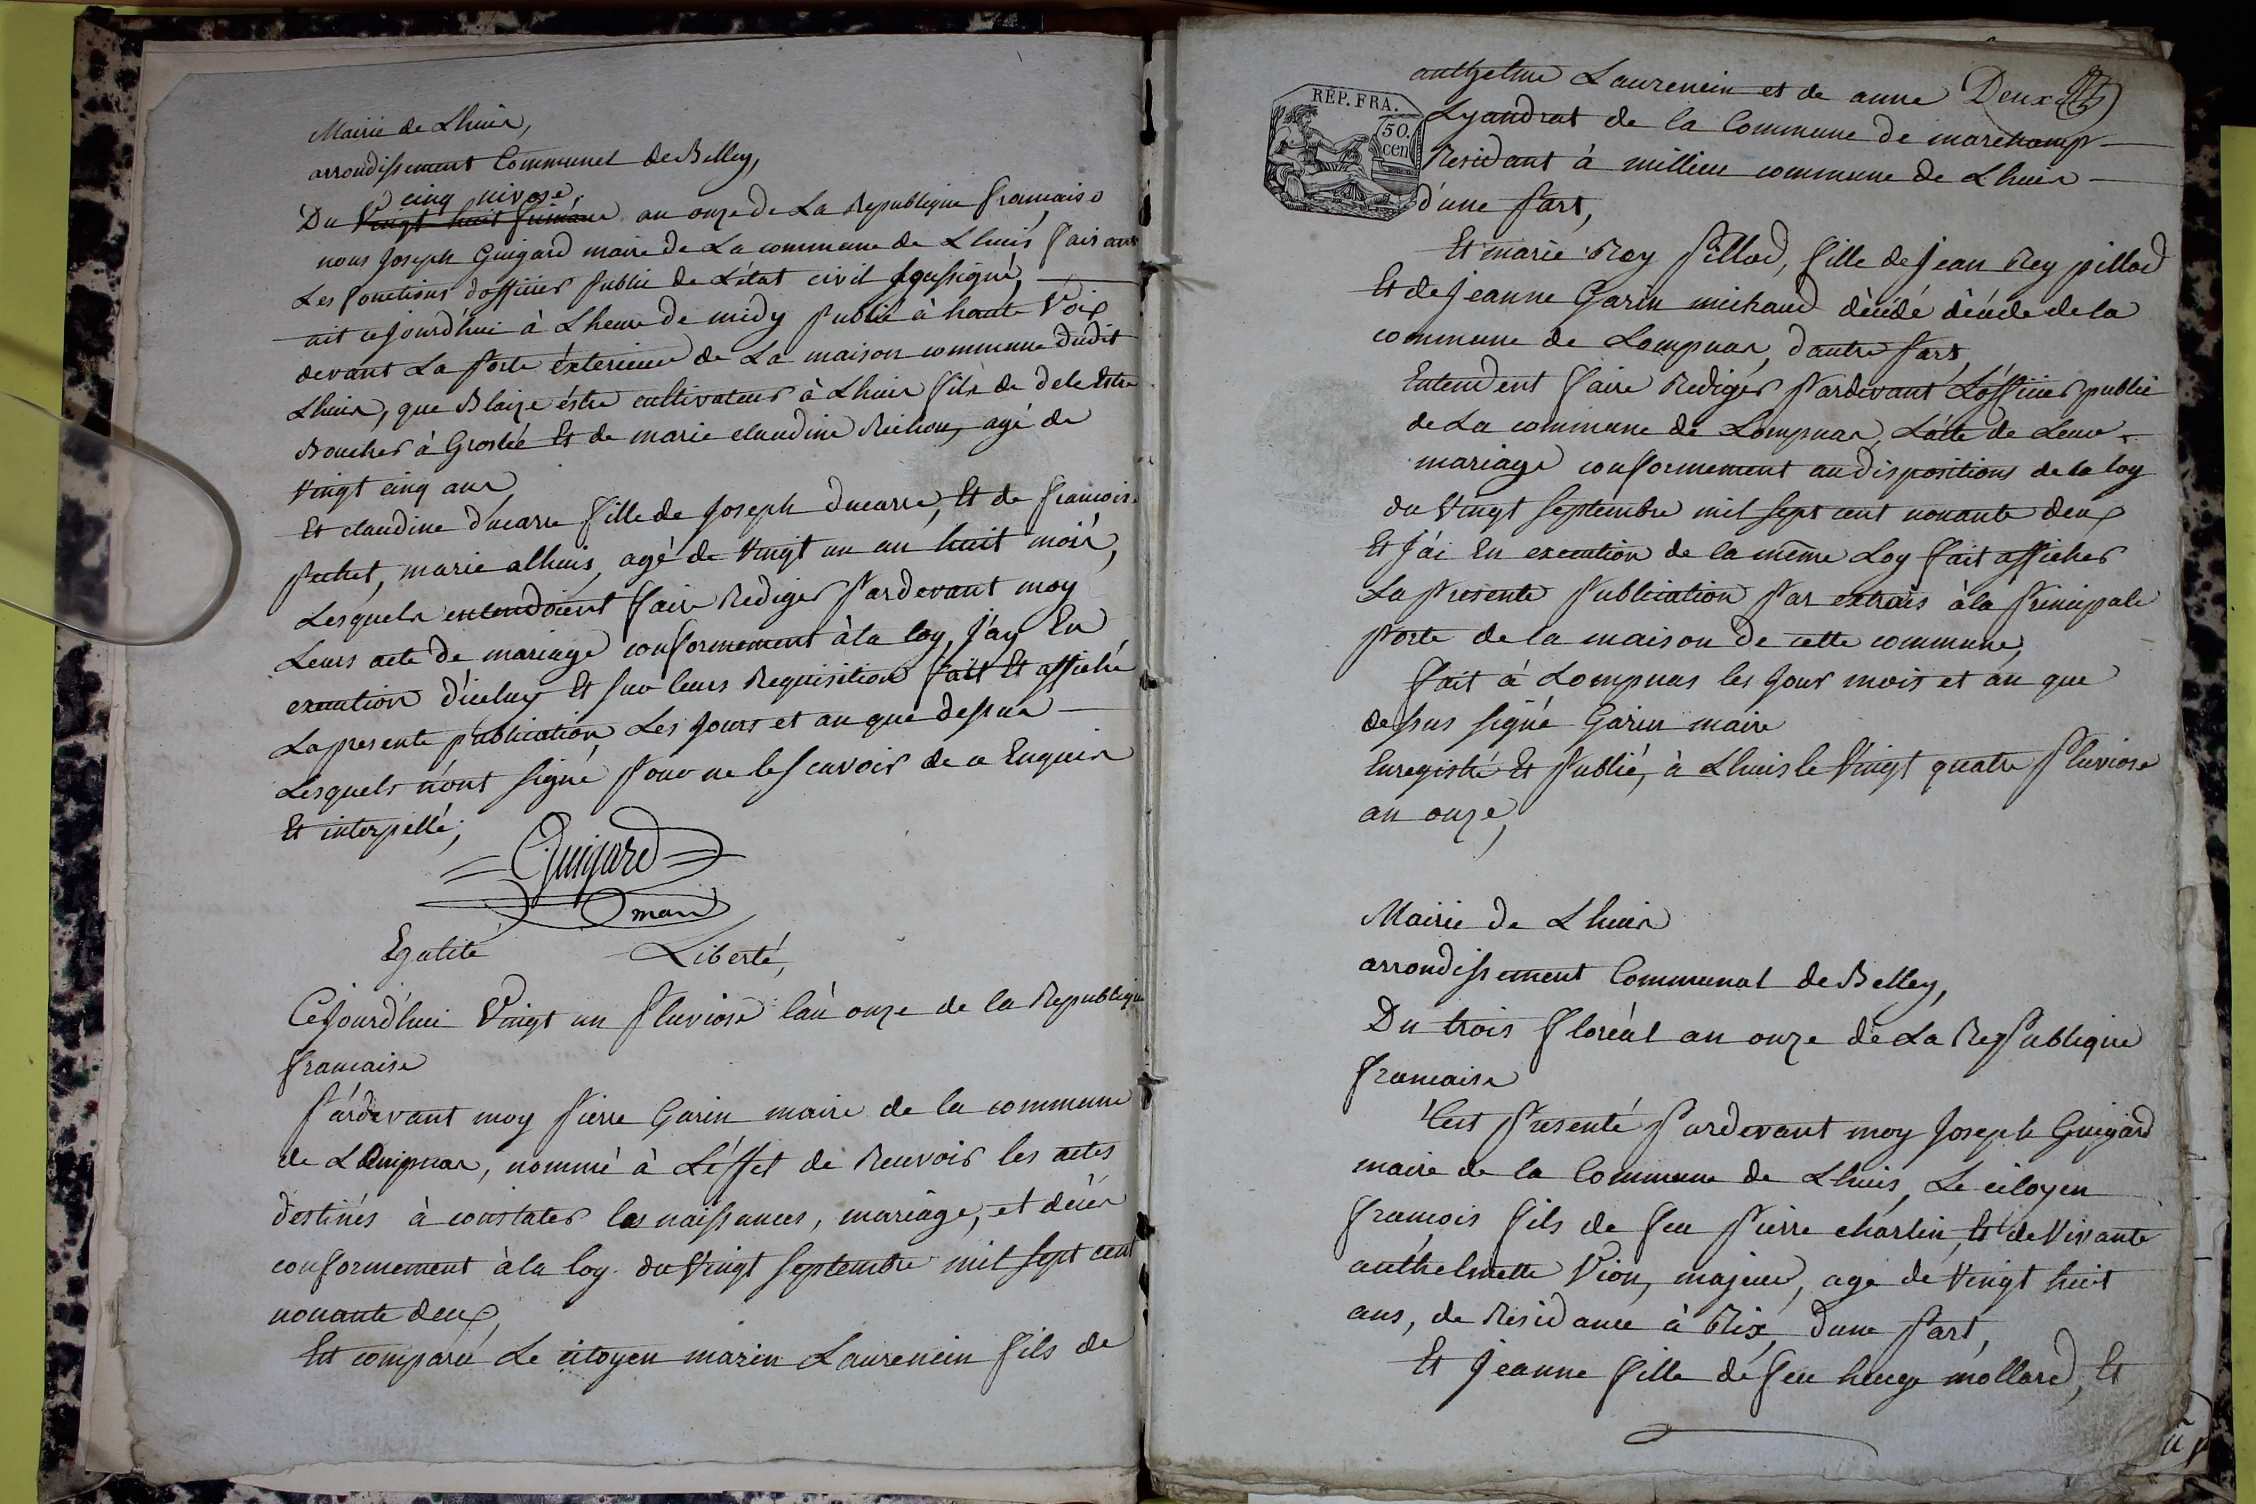 Mairie de Lhuis,
arrondissement Communel de Belley,
cinq nivose
Du vingt huit frimaire an onze de La Republique francaise
nous Joseph Guigard maire de La commune de Lhuis faisant
Les fonctions dofficier public de Létat civil soussigné,
ait cejourd'hui à Lheure de midy publié à haute Voix
devant La porte éxterieure de La maison commune dudit
Lhuis, que Blaize éstre cultivateur à Lhuis fils de
Boucher à Groslée Et de marie claudine Richon, agé de
vingt cinq ans
Et claudine ducarre fille de Joseph ducarre, Et de francoise
marie alhuis, agé de vingt un an huit mois,
Lesquels entendoient faire Rediger pardevant moy
Leurs acte de mariage conformement à la loy, j'ay En
execution d'iceluy Et sur leurs Requisition fait Et affiché
La presente publication Les jours et an que dessus
Lesquels n'ont signé pour ne le scavoir de ce Enquis
Et interpellé;
Guigard
maire
Egalité Liberté,
Cejourd'hui Vingt un pluviose l'an onze de la Republique
francaise
pardevant moy pierre Garin maire de la commune
de Lompnas, nommé à L'éffet de Recevoir les actes
destinés à constater les naissances, mariage, et décés
conformement à la loy du vingt septembre mil sept cent
nonante deux,
Est comparu Le citoyen marin Laurencin fils de
anthelme Laurencin et de anne Deux
Lyandrat de la Commune de marchamp
Residant à millieu commune de Lhuis
d'une part,
RÉP. FRA.
50.
cen
Et marie Rey pillod, fille de jean Rey pillod
Et de jeanne Garin michaud dècédé dècéde de la
commune de Lompnas, dautre part,
Entendent faire Rediger pardevant L'officier public
de La commune de Lompnas, L'acte de Leur
mariage conformement au dispositions de la loy
du vingt septembre mil sept cent nonante deux
Et j'ai En execution de la même Loy fait afficher
La presente publication par extrais à la principale
porte de la maison de cette commune,
fait à Lompnas les jour mois et an que
dessus signé Garin maire
Enregistré Et publié, à Lhuis le Vingt quatre pluviose
an onze,
Mairie de Lhuis
arrondissement Communal de Belley,
Du trois floréal an onze de La Republique
francaise
C'est presenté pardevant moy Joseph Guigard
maire de la Commune de Lhuis, Le citoyen
françois fils de feu pierre charlin, Et de vivante
anthelmette Vion, majeur, age de vingt huit
ans, de Residance à Rix, dune part,
Et jeanne fille de feu huge mollard, Et